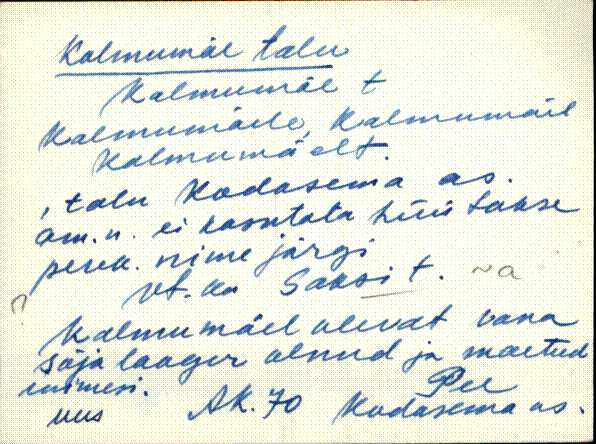 Kalmumäe talu
Kalmumäe t
Kalmumäele, Kalmumäel
Kalmumäelt.
, talu Kodasema as.
am. n. ei kasutata hüütakse
perek. nime järgi
Vt. ka Saksi t. ~a
Kalmumäel olevat vana
sõja laager olnud ja maetud
inimesi.
Pee
uus AK. 70 Kodasema as.